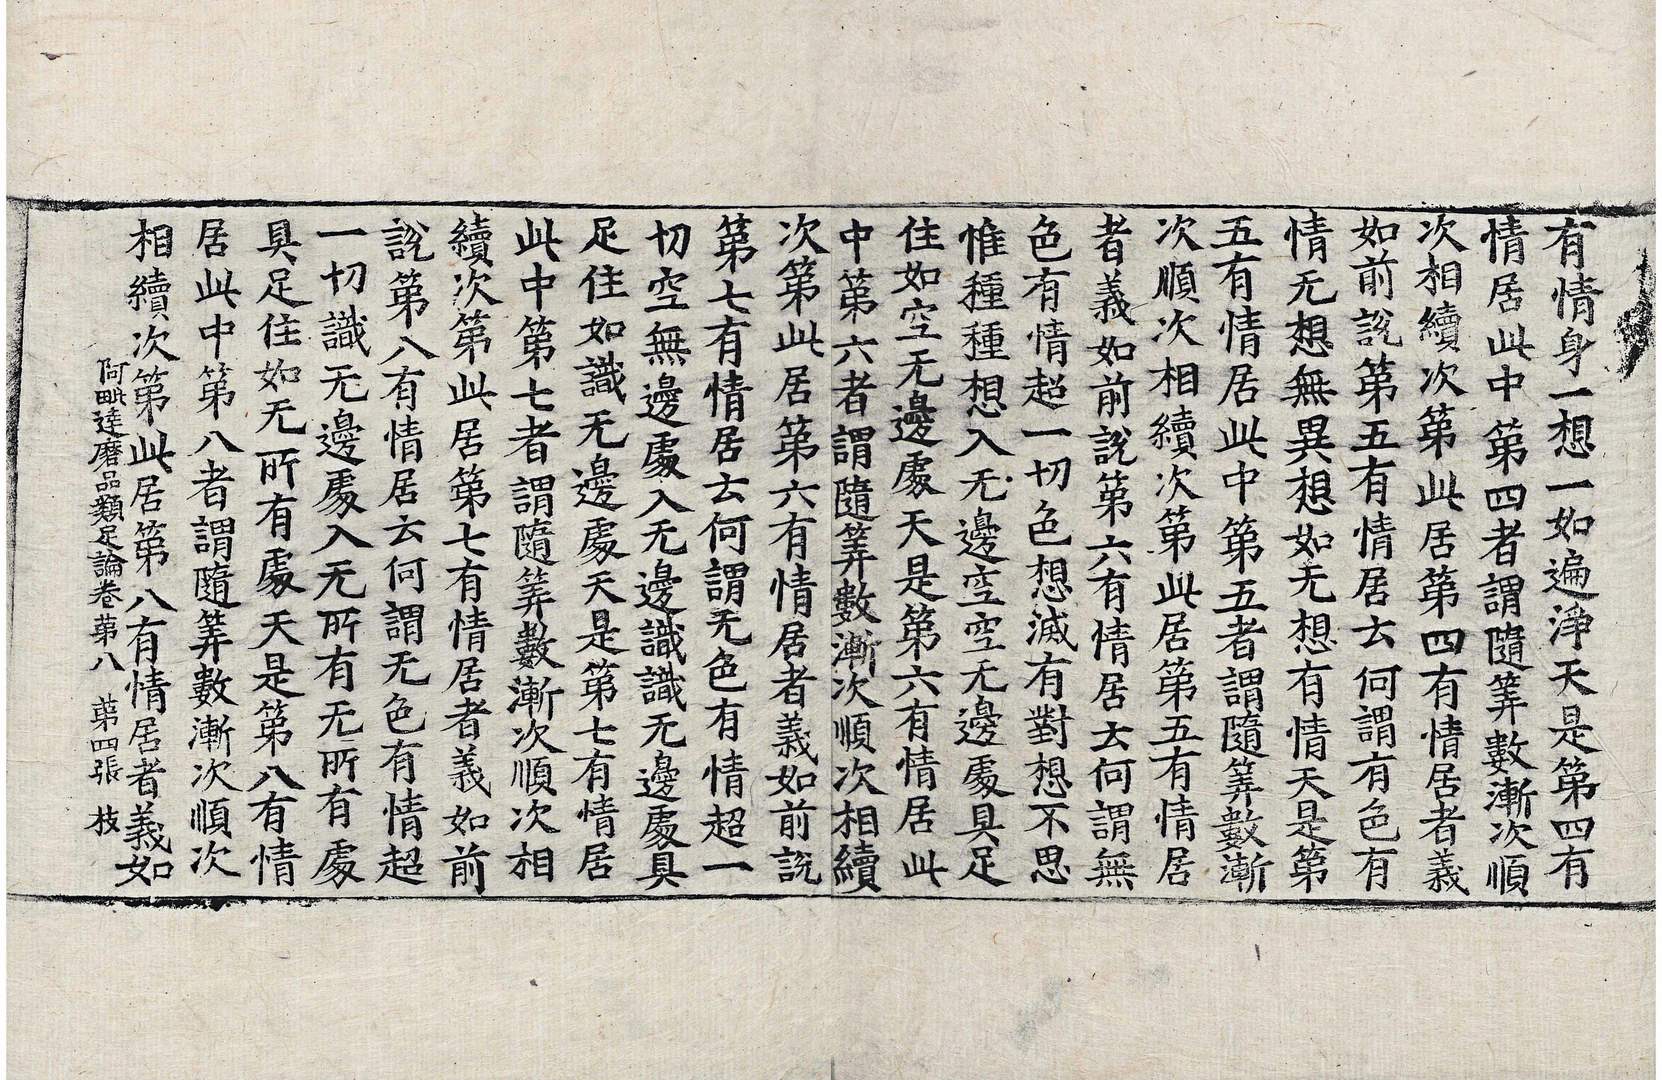 有情身一想一如遍淨天是第四有
情居此中第四者謂隨筭數漸次順
次相續次第此居第四有情居者義
如前說第五有情居云何謂有色有
情无想無異想如无想有情天是第
五有情居此中第五者謂隨筭數漸
次順次相續次第此居第五有情居
者義如前說第六有情居云何謂無
色有情超一切色想滅有對想不思
惟種種想入无邊空空无邊處具足
住如空无邊處天是第六有情居此
中第六者謂隨筭數漸次順次相續
次第此居第六有情居者義如前說
第七有情居云何謂无色有情超一
切空無邊處入无邊識識无邊處具
足住如識无邊處天是第七有情居
此中第七者謂隨筭數漸次順次相
續次第此居第七有情居者義如前
說第八有情居云何謂无色有情超
一切識无邊處入无所有无所有處
具足住如无所有處天是第八有情
居此中第八者謂隨筭數漸次順次
相續次第此居第八有情居者義如
阿毗達磨品類足論卷第八 第四張 枝